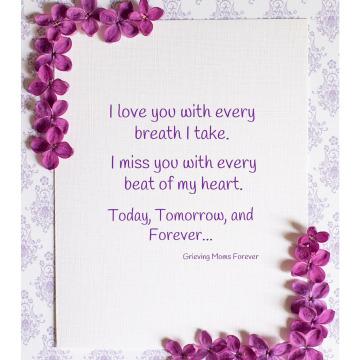 I love you with every
breath I take.
I miss you with every
beat of my heart.
Today, Tomorrow, and
Forever...
Grieving Moms Forever